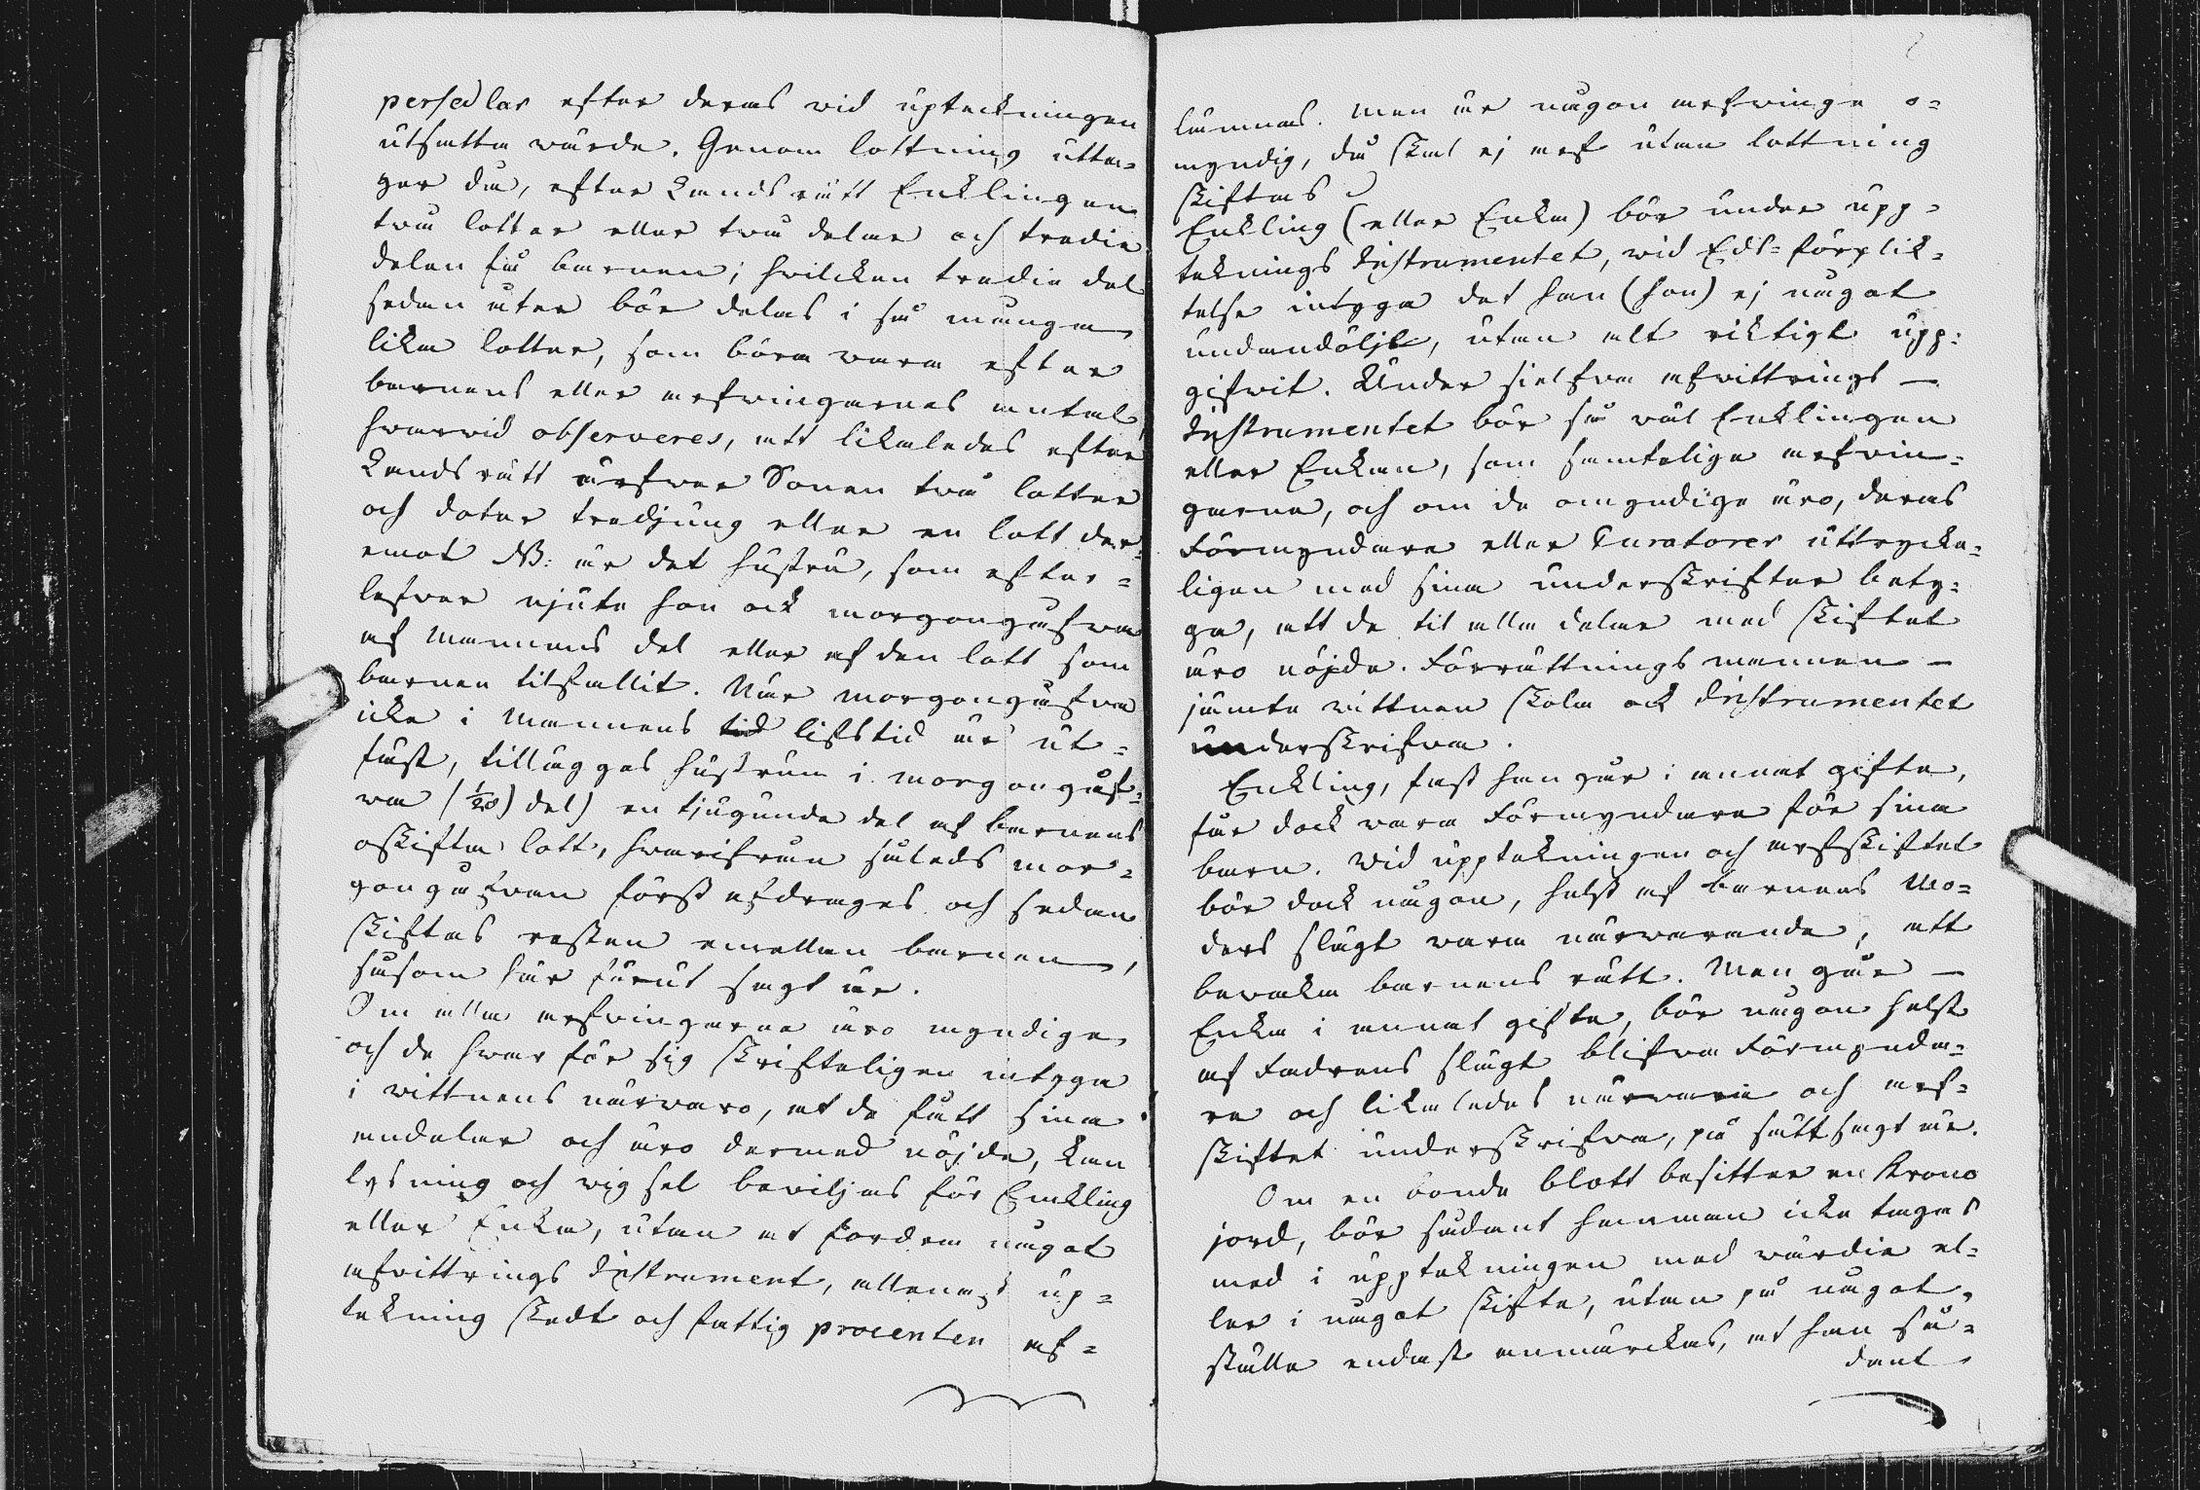 persedlar efter deras wid upteckningen
utsatta wärde. Genom lottning utta-
ger då, efter Landsrätt Enklingen
twå lotter eller twå delar och tredie
delen få barnen; hvilcken tredie del
sedan åter bör delas i så många
lika lotter, som böra wara efter
barnens eller arfvingarnes antal,
hwarwid observeres, att likaledes efter
Landsrätt ärfver Sonen två lotter
och doter tredjung eller en lott der-
emot NB: är det hustru, som efter-
lefver njute hon ock morgongåfva
af Mannens del eller af den lott som
barnen tilfallit. När morgongåfva
icke i Mannens tid lifstid är ut-
fäst, tillägges hustrun i morgongåf-
va (1/20) del) en tjugunde del af barnens
oskifta lott, hwarifrån således mor-
gongåfvan först afdrages och sedan
skiftas resten emellan barnen,
såsom här förut sagt är.
Om alla arfvingarna äro myndige
och de hwar för sig skrifteligen intyga
i wittnens närvaro, at de fått sina
andelar och äro dermed nöjde, kan
lysning och wigsel beviljas för Enkling
eller Enka, utan at fordra något
afvittrings Instrument, allenast up-
tekning skedt och fattig procenten af-
lämnas. Men är någon arfvinge o-
myndig, då skal ej arf utan lottning
skiftas
Enkling (eller Enka) bör under upp-
teknings Instrumentet, wid Eds-förplik-
telse intyga det han (hon) ej något
undandöljt, utan alt riktigt upp-
gifvit. Under sielfva afvittrings-
Instrumentet bör så väl Enklingen
eller Enkan, som samtelige arfvin-
garna, och om de omyndige äro, deras
Förmyndare eller Curatorer uttrycke-
ligen med sina underskrifter bety-
ga, att de til alla delar med skiftet
äro nöjde. Förrättnings mannen -
jämte vittnen skola ock Instrumentet
underskrifva.
Enkling, fast han går i annat gifte,
får dock vara Förmyndare för sina
barn. Wid upptekningen och arfskiftet
bör dock någon, helst af barnens Mo-
ders slägt vara närvarande, att
bevaka barnens rätt. Men går -
Enka i annat gifte, bör någon helst
af Fadrens slägt blifva Förmynda-
re och likaledes närvara och arf-
skiftet underskrifva, på sätt sagt är.
Om en bonde blott besitter en Krono
jord, bör sådant hemman icke tages
med i upptekningen med wärdie el-
ler i något skifte, utan på något
ställe endast anmärckas, at han så-
dant